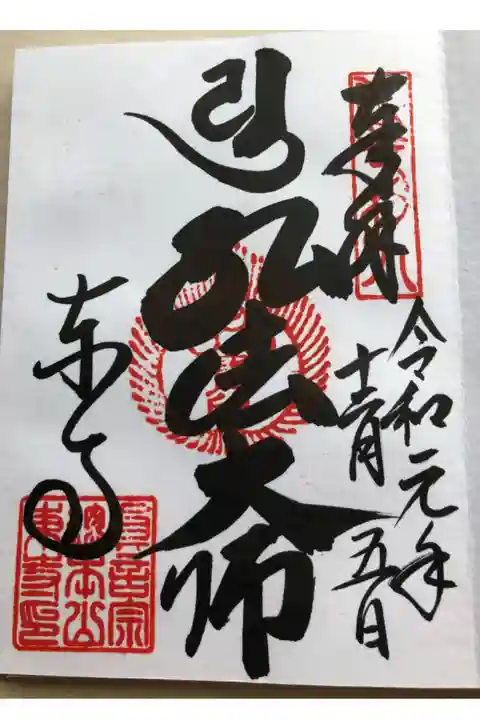 奉拝
令和元年
十二月五日
弘法大師
東寺
真言宗
総本山
東寺印